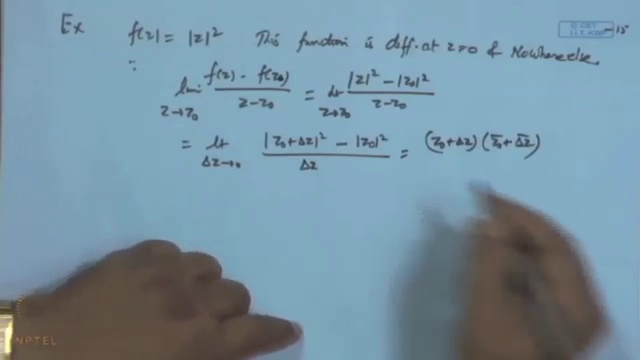 Ex f(z) = |z|² This function is diff. at z=0 & Nowhere else.
∵
lim z→z₀ f(z) - f(z₀) / z - z₀ = lt z→z₀ |z|² - |z₀|² / z - z₀
= lt Δz→0 |z₀+Δz|² - |z₀|² / Δz = (z₀+Δz)(z̄₀+Δ̄z̄)
NPTEL